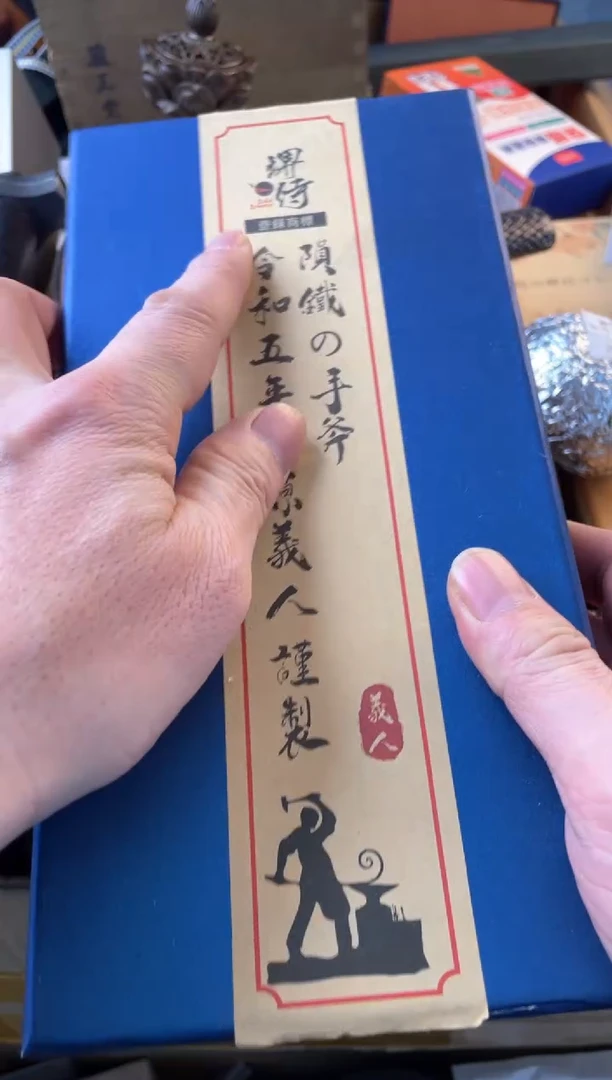 堺侍
登録商標
隕鐵の手斧
令和五年
義人謹製
義人